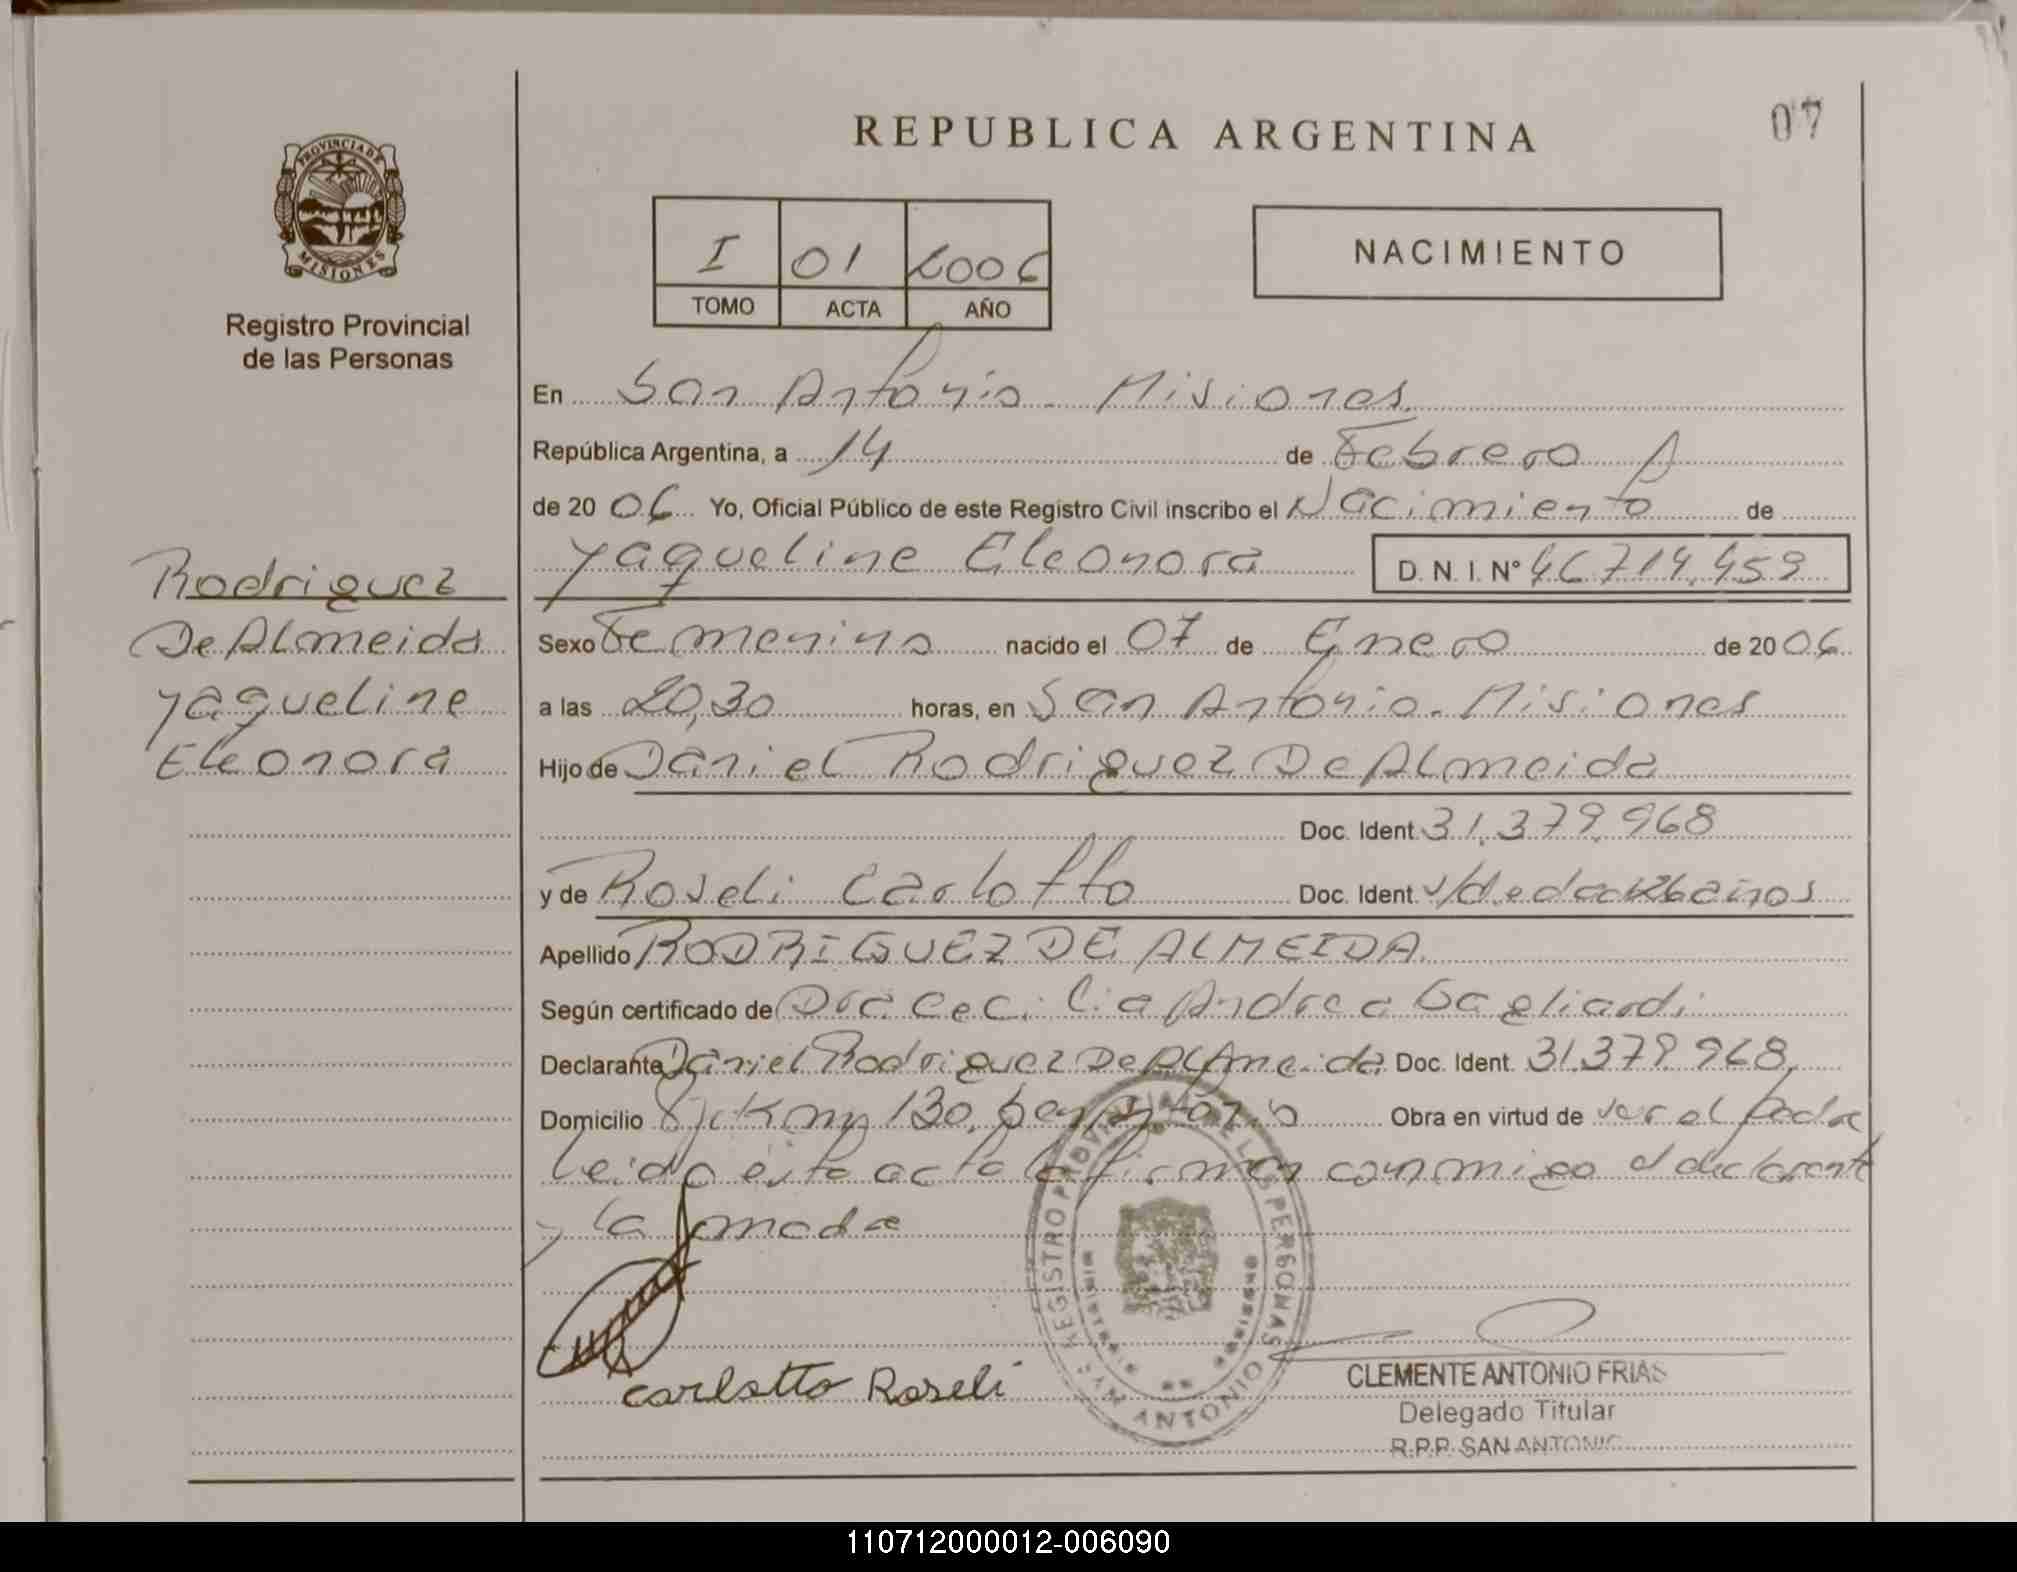 REPUBLICA ARGENTINA
07
PROVINCIA DE
MISIONES
Registro Provincial
de las Personas
I 01 2006
TOMO ACTA AÑO
NACIMIENTO
En San Antonio - Misiones
República Argentina, a 14 de Febrero
de 2006 Yo, Oficial Público de este Registro Civil inscribo el Nacimiento de
Yaqueline Eleonora D. N. I. N° 46714.459
Rodriguez
De Almeida
Yaqueline
Eleonora
Sexo Femenino nacido el 07 de Enero de 2006
a las 20,30 horas, en San Antonio - Misiones
Hijo de Daniel Rodriguez De Almeida
Doc. Ident. 31.379.968
y de Roseli Carlotto Doc. Ident. años
Apellido RODRIGUEZ DE ALMEIDA
Según certificado de Dra. Cecilia Andrea Gagliardi
Declarante Daniel Rodriguez De Almeida Doc. Ident. 31.379.968
Domicilio 130, San Antonio Obra en virtud de ser el padre
Leida esta acta la firman conmigo el declarante
y la madre
carlotto Roseli
REGISTRO PROVINCIAL DE LAS PERSONAS
MISIONES
SAN ANTONIO
CLEMENTE ANTONIO FRIAS
Delegado Titular
R.P.P. SAN ANTONIO
110712000012-006090